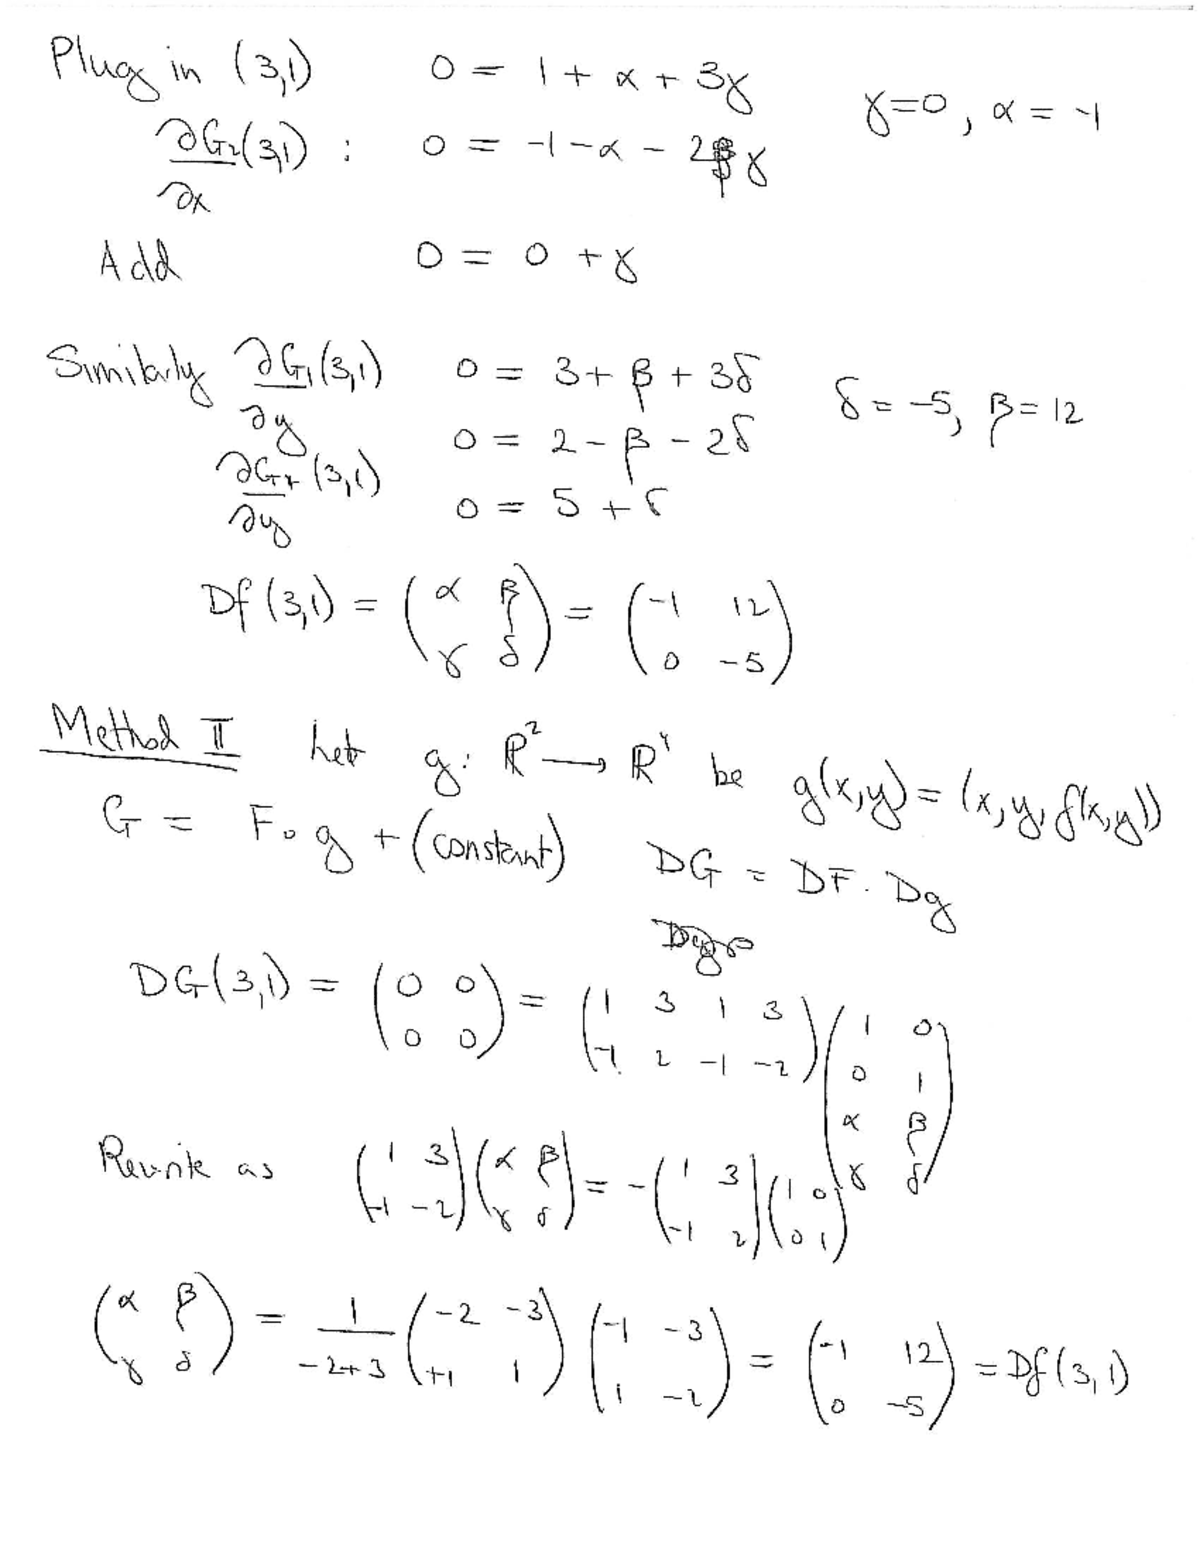 Plug in (3,1) 0 = 1 + α + 3γ γ=0, α = -1
∂G₂(3,1)/∂x : 0 = -1 - α - 2γ
Add 0 = 0 + γ
Similarly ∂G₁(3,1)/∂y 0 = 3 + β + 3δ δ = -5, β = 12
∂G₂(3,1)/∂y 0 = 2 - β - 2δ
0 = 5 + δ
Df(3,1) = (α β; γ δ) = (-1 12; 0 -5)
Method II Let g: ℝ² → ℝ⁴ be g(x,y) = (x, y, f(x,y))
G = F∘g + (constant) DG = DF · Dg
DG(3,1) = (0 0; 0 0) = (1 3 1 3; -1 2 -1 -2)(1 0; 0 1; α β; γ δ)
Rewrite as (1 3; -1 -2)(α β; γ δ) = -(1 3; -1 2)(1 0; 0 1)
(α β; γ δ) = 1/(-2+3) (-2 -3; +1 1)(-1 -3; 1 -2) = (-1 12; 0 -5) = Df(3,1)